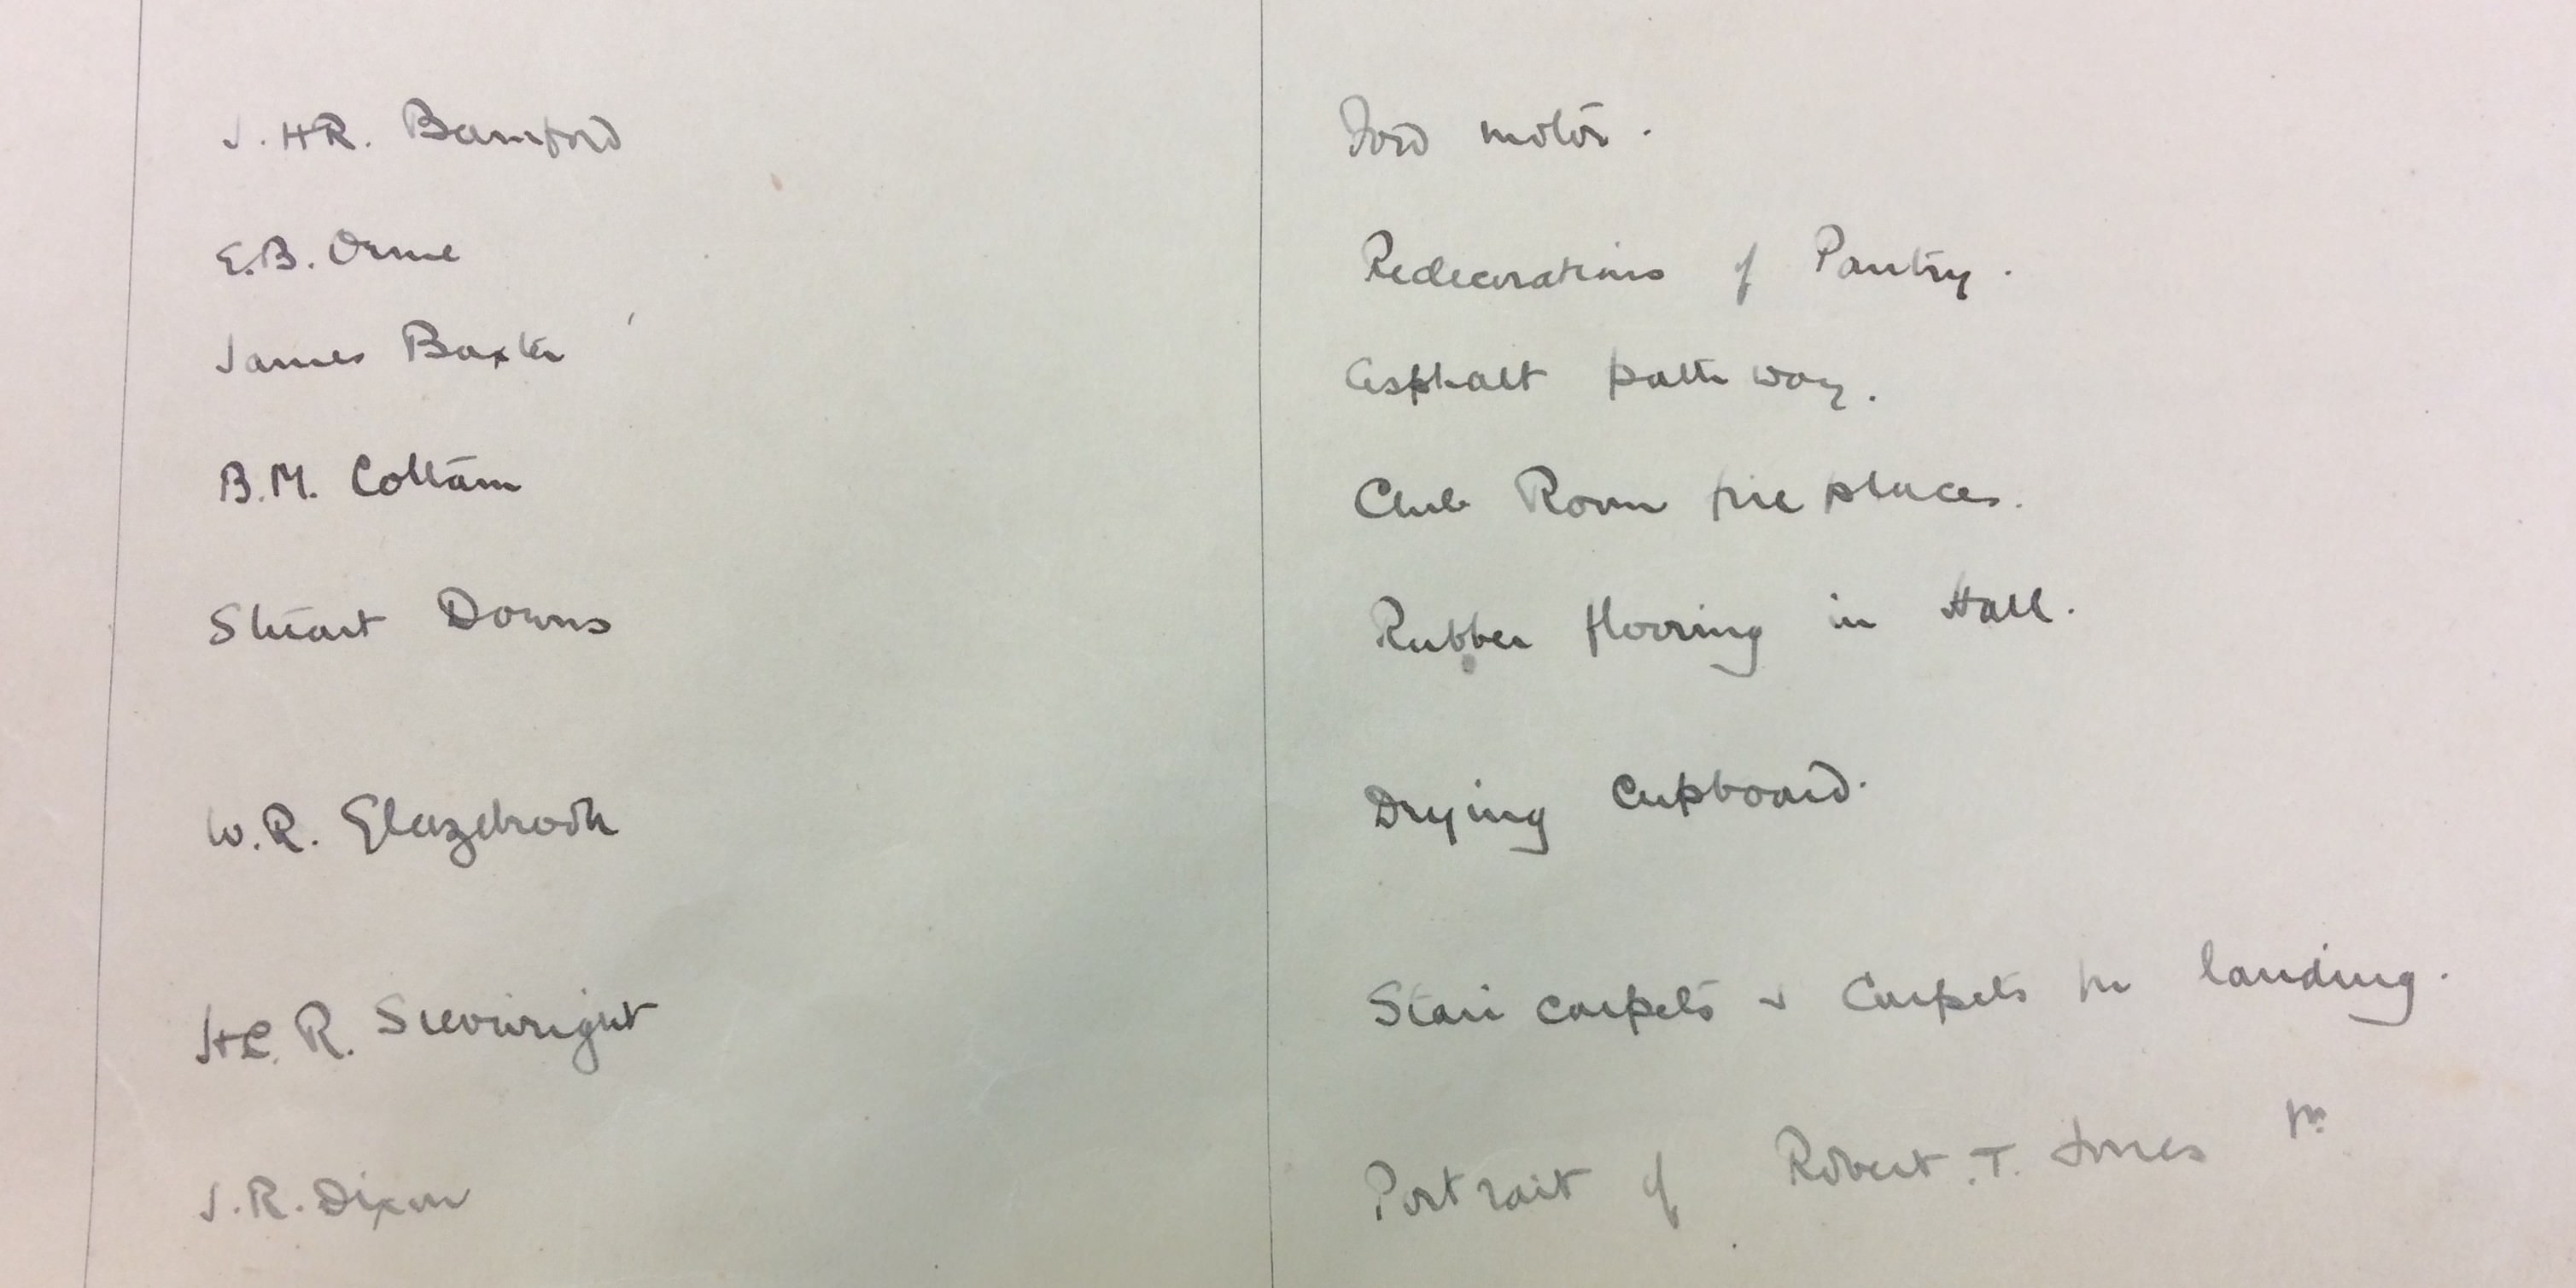 J. HR. Bamford Ford motor.
E.B. Orme Redecorations of Pantry.
James Baxter Asphalt path way.
B.M. Cottam Club Room fire places.
Stuart Downs Rubber flooring in Hall.
W.R. Glazebrook Drying Cupboard.
R. Sievwright Stair carpets & Carpets for landing.
J.R. Dixon Portrait of Robert. T. Jones Jr.